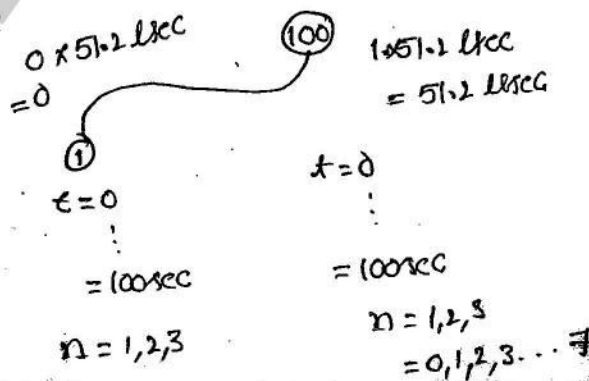 0 x 51.2 µsec
= 0
100
1x51.2 µsec
= 51.2 µsec
1
t = 0
= 100sec
n = 1,2,3
t = 0
= 100sec
n = 1,2,3
= 0,1,2,3...